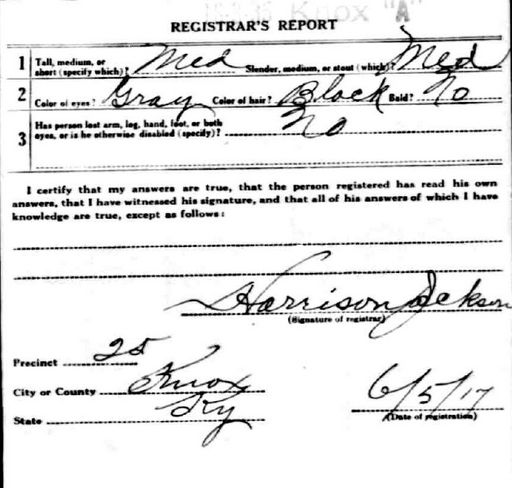 Knox "A"
REGISTRAR'S REPORT
1 Tall, medium, or short (specify which)? Med Slender, medium, or stout (which)? Med
2 Color of eyes? Gray Color of hair? Black Bald? No
3 Has person lost arm, leg, hand, foot, or both eyes, or is he otherwise disabled (specify)? No
I certify that my answers are true, that the person registered has read his own
answers, that I have witnessed his signature, and that all of his answers of which I have
knowledge are true, except as follows:
Harrison Jackson
(Signature of registrar)
Precinct 25
City or County Knox
State Ky
6/5/17
(Date of registration)